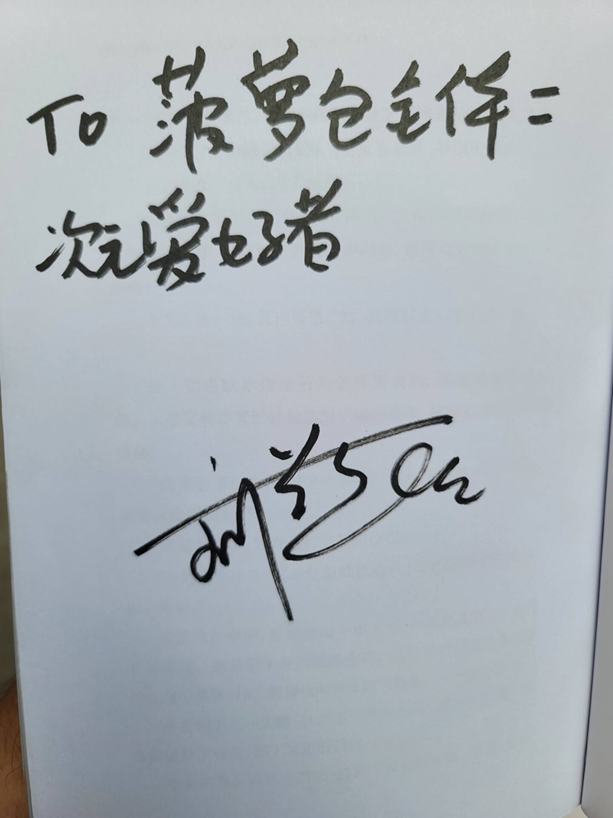 To 菠萝包全体二
次元爱好者